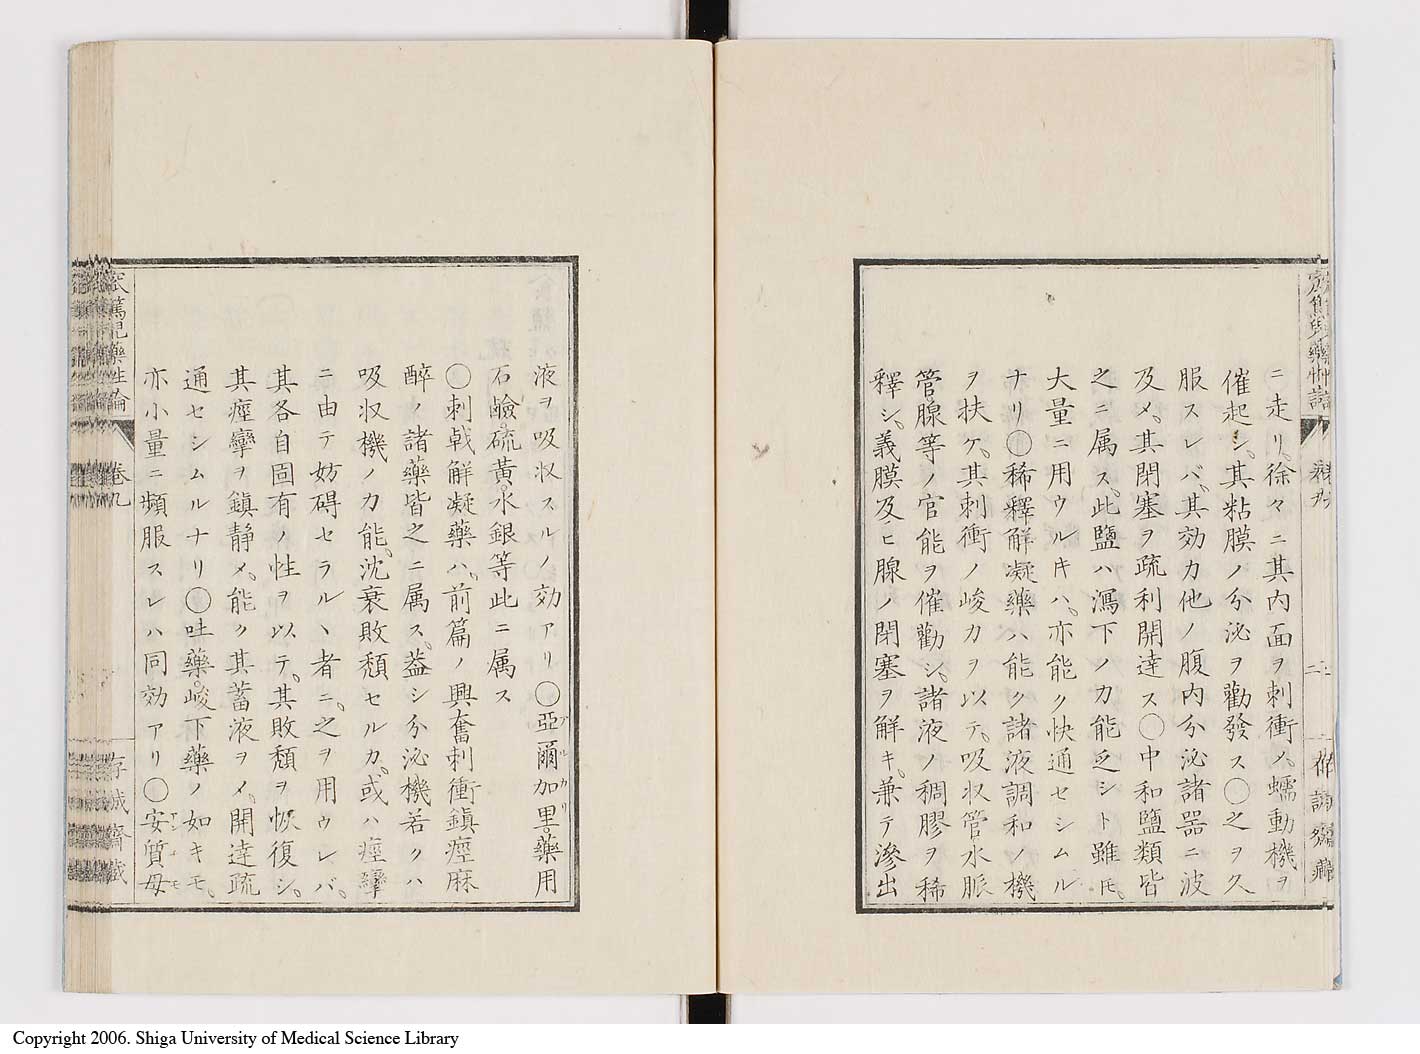 ニ走リ、徐々ニ其内面ヲ刺衝ノ、蠕動機ヲ
催起シ、其粘膜ノ分泌ヲ勸發ス〇之ヲ久
服スレバ、其効力他ノ腹内分泌諸器ニ波
及メ、其閉塞ヲ疏利開達ス〇中和鹽類皆
之ニ属ス、此鹽ハ瀉下ノ力能乏シト雖𪜈、
大量ニ用ウルキハ、亦能ク快通セシムル
ナリ〇稀釋解凝藥ハ能ク諸液調和ノ機
ヲ扶ケ、其刺衝ノ峻力ヲ以テ、吸収管水脈
管、腺等ノ官能ヲ催勸シ、諸液ノ稠膠ヲ稀
釋シ、義膜及ヒ腺ノ閉塞ヲ解キ、兼テ滲出
液ヲ吸収スルノ効アリ〇亞爾加里藥用
アルカリ
石鹼、硫黄水銀等此ニ属ス
〇刺戟解凝藥ハ、前篇ノ興奮刺衝鎮痙麻
醉ノ諸藥皆之ニ属ス、葢シ分泌機若クハ
吸収機ノ力能、沈衰敗頽セルカ、或ハ痙攣
ニ由テ妨碍セラルヽ者ニ、之ヲ用ウレバ、
其各自固有ノ性ヲ以テ、其敗頽ヲ恢復シ、
其痙攣ヲ鎮静メ、能ク其蓄液ヲメ、開達疏
通セシムルナリ〇吐藥、峻下藥ノ如キモ、
亦小量ニ頻服スレハ同効アリ〇安質母
アンチモ
篤兒藥性論
卷九
存誠齋蔵
Copyright 2006. Shiga University of Medical Science Library